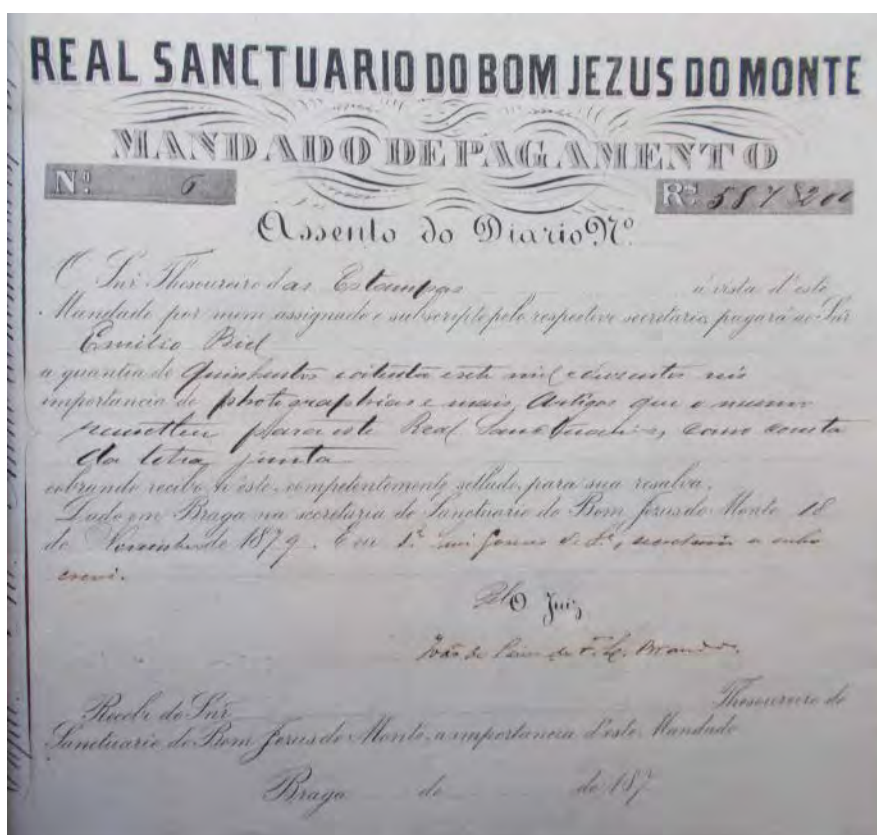 REAL SANCTUARIO DO BOM JEZUS DO MONTE
MANDADO DE PAGAMENTO
Nº 6 Rs. 587$200
Assento do Diario Nº
O Snr. Thesoureiro das Estampas á vista d'este
Mandado por mim assignado e subscripto pelo respectivo secretario, pagará ao Snr
Emilio Biel
a quantia de quinhentos e oitenta e sete mil e duzentos reis
importancia de photographias e mais artigos que o mesmo
remetteu para este Real Sanctuario, como consta
da letra junta
cobrando recibo n'este, competentemente sellado, para sua resalva.
Dado em Braga na secretaria do Sanctuario do Bom Jesus do Monte 18
de Novembro de 1879. E eu secretario o sub
screvi.
Pelo O Juiz
João de
Recebi do Snr. Thesoureiro do
Sanctuario do Bom Jesus do Monte, a importancia d'este Mandado
Braga de de 187